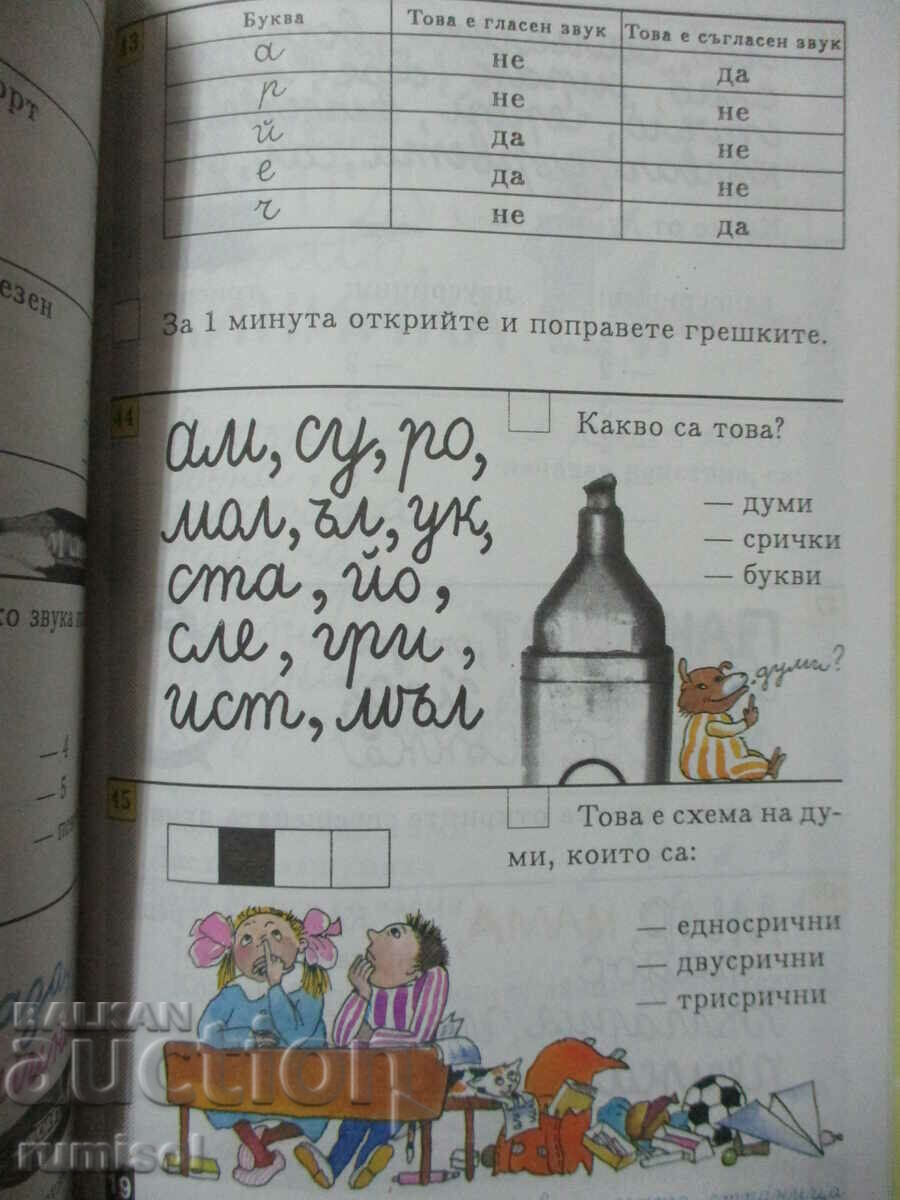 орт
езен
ко звука
— 4
— 5
43
Буква Това е гласен звук Това е съгласен звук
а не да
р не не
й да не
е да не
ч не да
За 1 минута открийте и поправете грешките.
44
ам, су, ро,
мол, ъл, ук,
ста, йо,
сле, гри,
ист, мъл
Какво са това?
— думи
— срички
— букви
думи?
45
Това е схема на ду-
ми, които са:
— едносрични
— двусрични
— трисрични
BALKAN
auction
rumisol
19